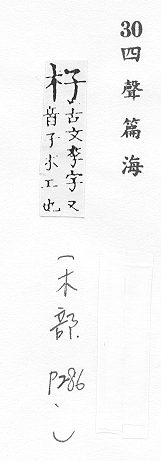 30四聲篇海
杍古文李字又
音子木工也
(木部 P286、)